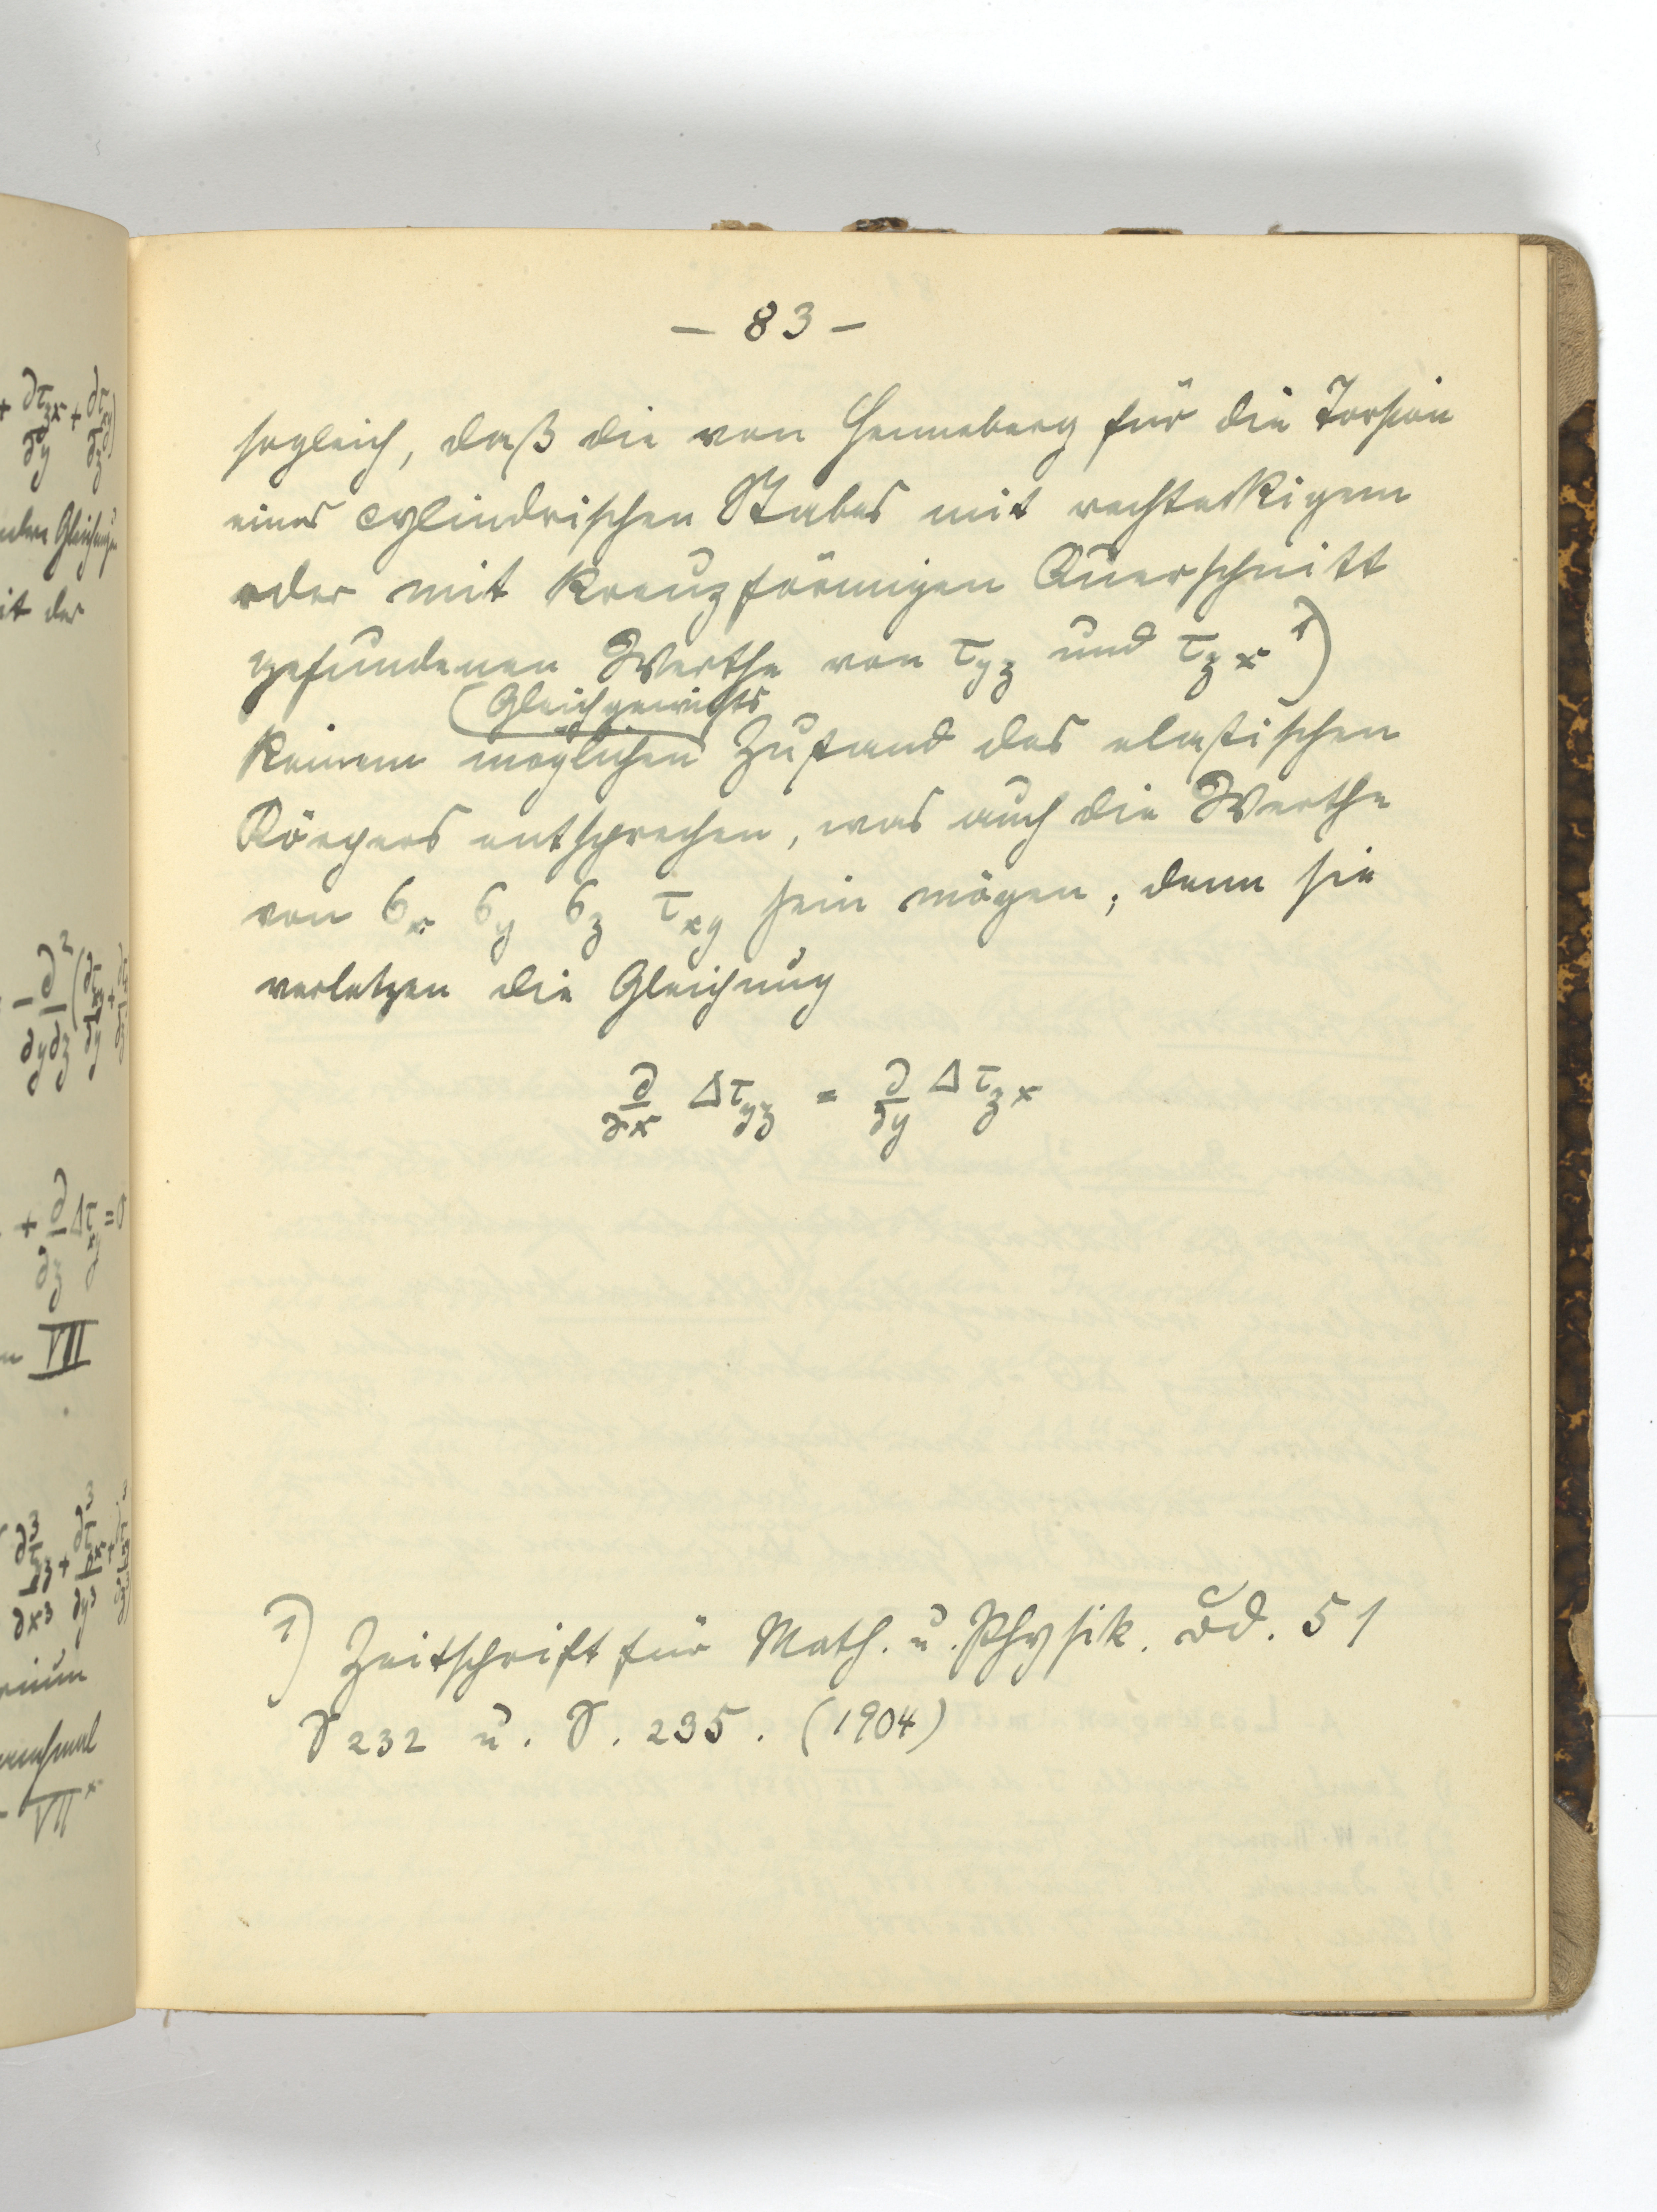 — 83 —
sogleich, daß die von Henneberg für die Torsion
eines cylindrischen Stabes mit rechteckigem
oder mit kreuzförmigen Querschnitt
gefundenen Werthe von τyz und τzx ¹)
(Gleichgewichts
keinem möglichen Zustand des elastischen
Körpers entsprechen, was auch die Werthe
von σx σy σz τxy sein mögen; denn sie
verletzen die Gleichung
∂/∂x Δτyz = ∂/∂y Δτzx
¹) Zeitschrift für Math. u. Physik. Bd. 51
S 232 u. S. 235. (1904)